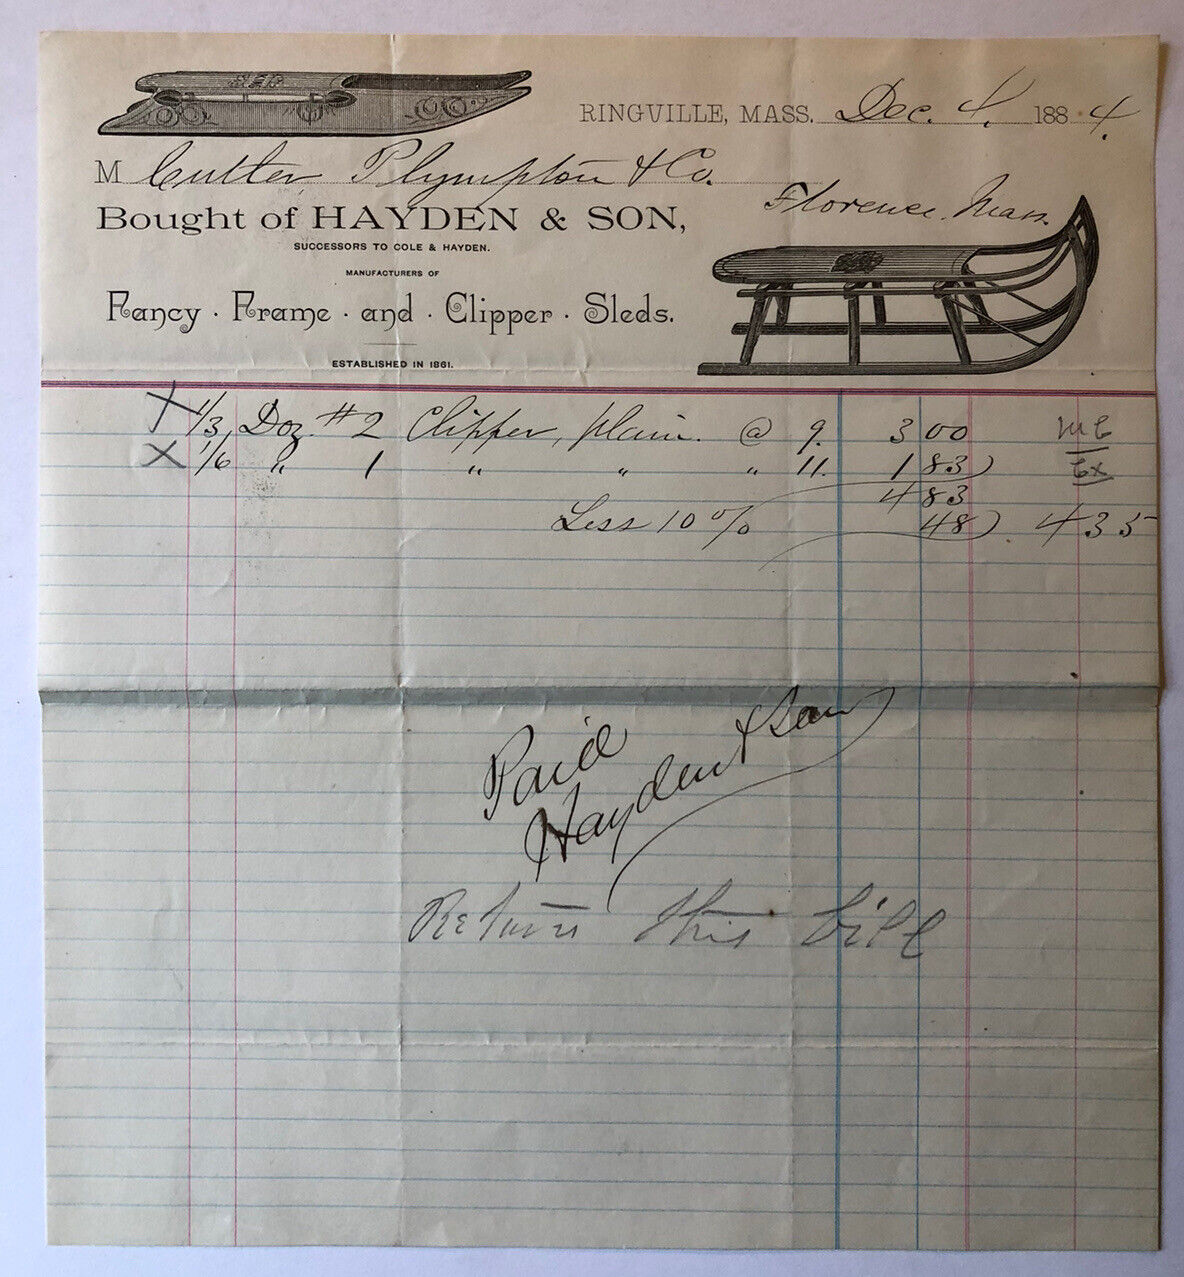 RINGVILLE, MASS. Dec. 4. 1884.
M Cutter Plympton & Co.
Florence. Mass.
Bought of HAYDEN & SON,
SUCCESSORS TO COLE & HAYDEN.
MANUFACTURERS OF
Fancy · Frame · and · Clipper · Sleds.
ESTABLISHED IN 1861.
X 1/3 Doz. #2 Clipper, plain. @ 9. 3 00
X 1/6 " 1 " " " 11. 1 83
4 83
Less 10% 48 4 35
Paid
Hayden & Son
Return this bill